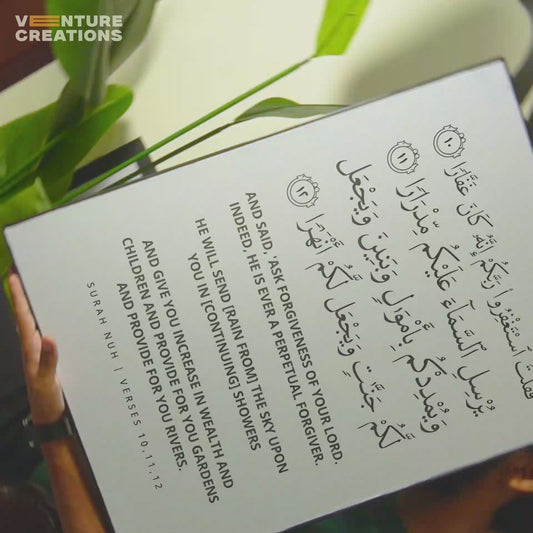 VENTURE
CREATIONS
فَقُلْتُ ٱسْتَغْفِرُوا۟ رَبَّكُمْ إِنَّهُۥ كَانَ غَفَّارًا ١٠
يُرْسِلِ ٱلسَّمَآءَ عَلَيْكُم مِّدْرَارًا ١١
وَيُمْدِدْكُم بِأَمْوَٰلٍ وَبَنِينَ وَيَجْعَل
لَّكُمْ جَنَّٰتٍ وَيَجْعَل لَّكُمْ أَنْهَٰرًا ١٢
AND SAID, 'ASK FORGIVENESS OF YOUR LORD.
INDEED, HE IS EVER A PERPETUAL FORGIVER.
HE WILL SEND [RAIN FROM] THE SKY UPON
YOU IN [CONTINUING] SHOWERS
AND GIVE YOU INCREASE IN WEALTH AND
CHILDREN AND PROVIDE FOR YOU GARDENS
AND PROVIDE FOR YOU RIVERS.
SURAH NUH | VERSES 10,11,12